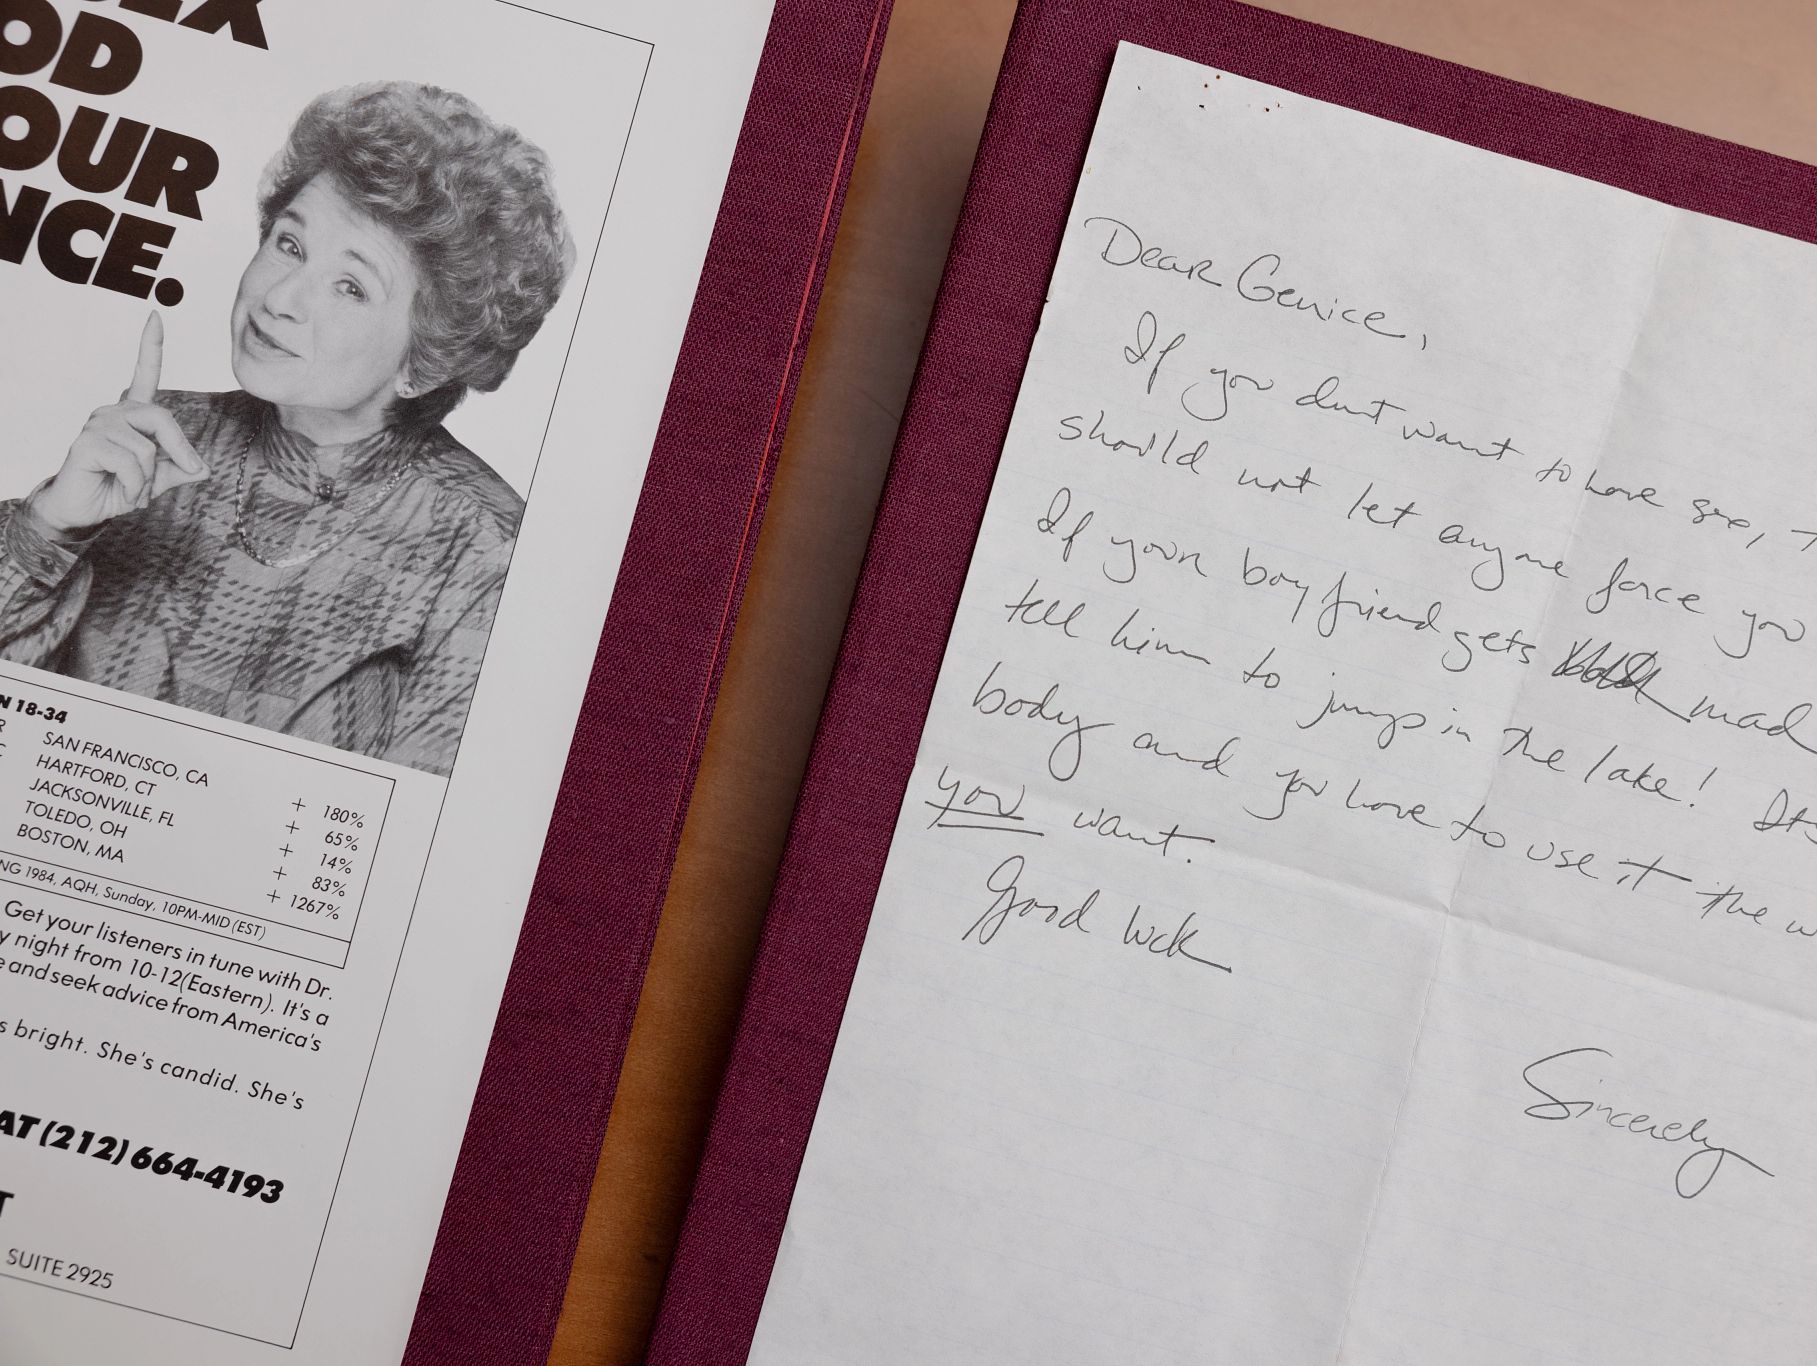 OD
OUR
NCE.
N 18-34
SAN FRANCISCO, CA + 180%
HARTFORD, CT + 65%
JACKSONVILLE, FL + 14%
TOLEDO, OH + 83%
BOSTON, MA + 1267%
NG 1984, AQH, Sunday, 10PM-MID (EST)
Get your listeners in tune with Dr.
y night from 10-12 (Eastern). It's a
e and seek advice from America's
s bright. She's candid. She's
AT (212) 664-4193
T
SUITE 2925
Dear Genice,
If you dont want to have sex,
should not let anyone force you
If your boyfriend gets mad
tell him to jump in the lake! Its
body and you have to use it the w
you want.
Good luck
Sincerely